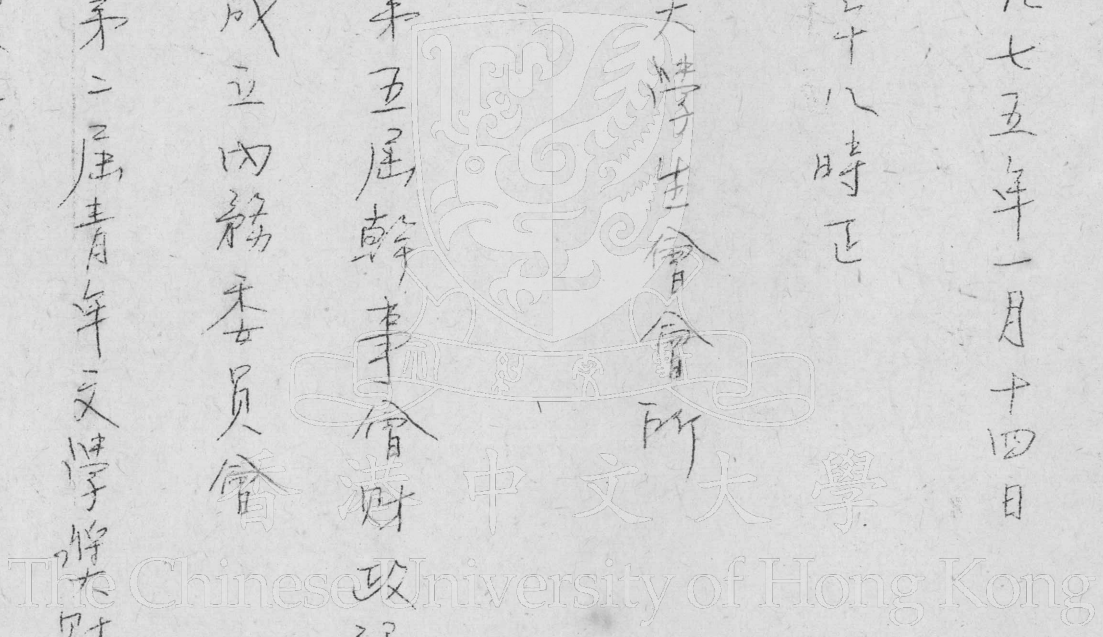 七五年一月十四日
午八時正
大學生會會所
第五屆幹事會財政
成立內務委員會
第二屆青年文學獎財
香港中文大學
The Chinese University of Hong Kong